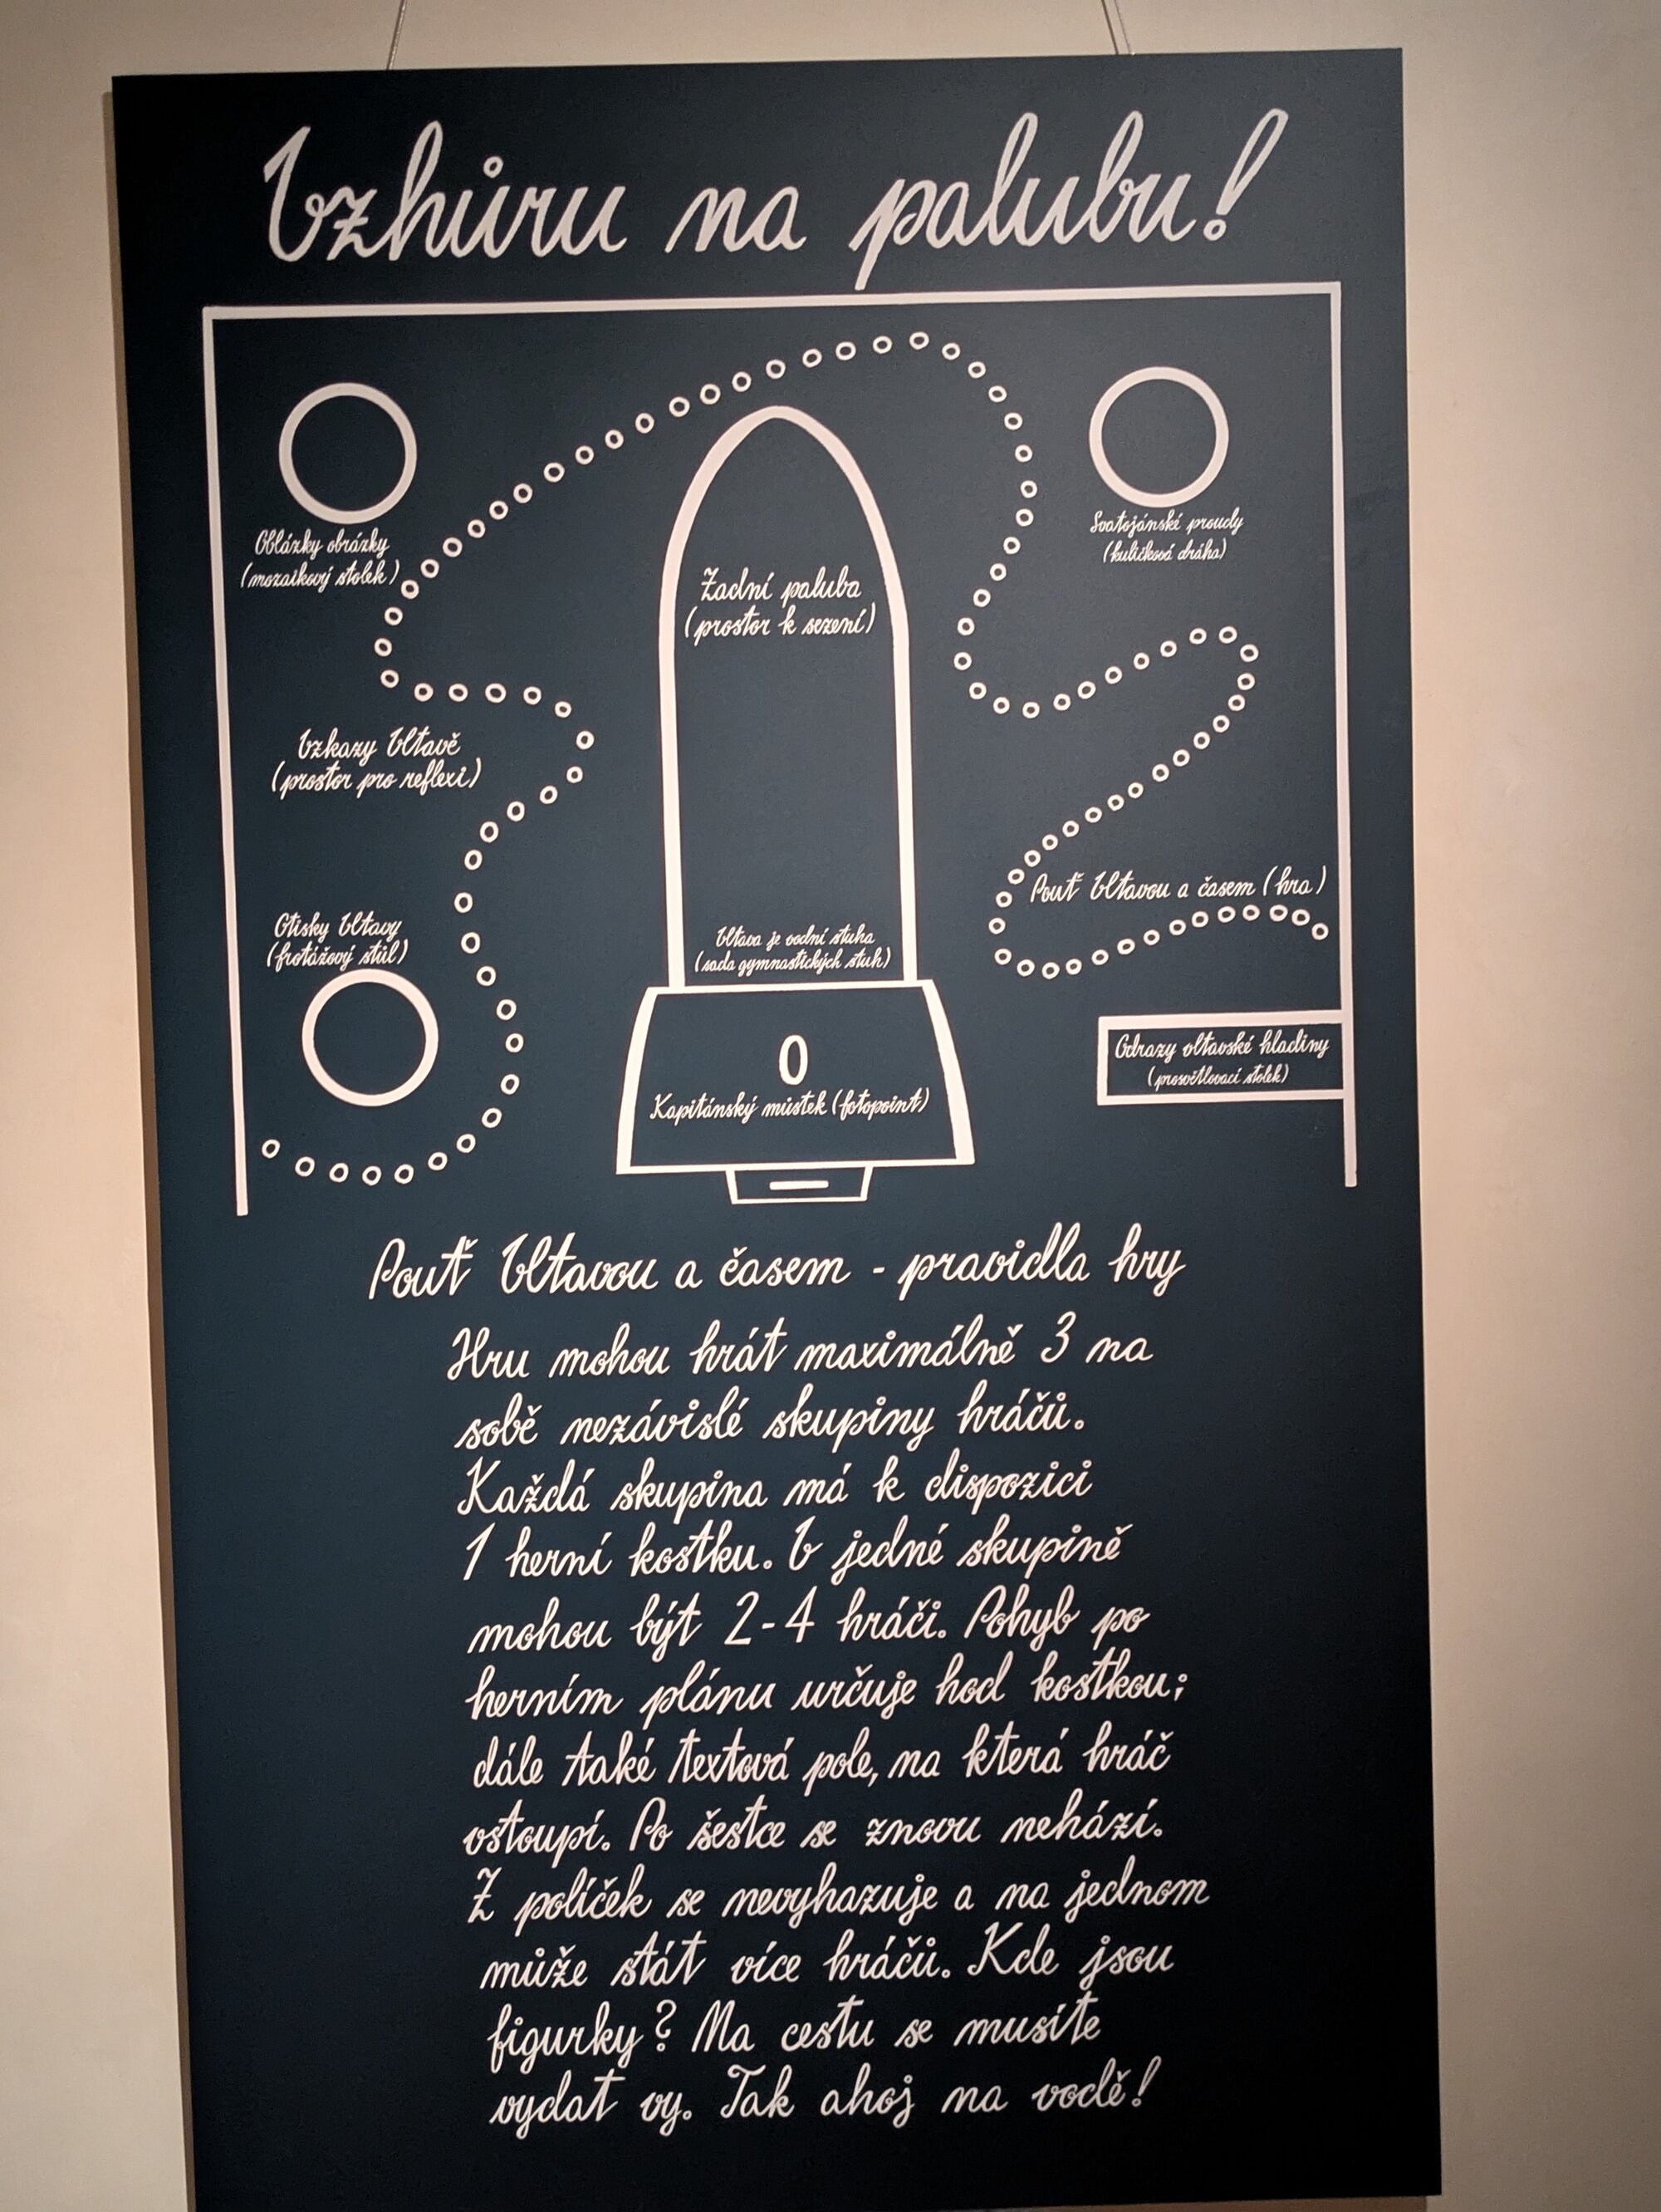 Vzhůru na palubu!
Oblázky obrázky
(mozaikový stolek)
Svatojánské proudy
(kuličková dráha)
Zadní paluba
(prostor k sezení)
Vzkazy Vltavě
(prostor pro reflexi)
Pouť Vltavou a časem (hra)
Otisky Vltavy
(frotážový stůl)
Vltava je vodní stuha
(sada gymnastických stuh)
Odrazy vltavské hladiny
(prosvětlovací stolek)
0
Kapitánský můstek (fotopoint)
Pouť Vltavou a časem - pravidla hry
Hru mohou hrát maximálně 3 na
sobě nezávislé skupiny hráčů.
Každá skupina má k dispozici
1 herní kostku. V jedné skupině
mohou být 2-4 hráči. Pohyb po
herním plánu určuje hod kostkou;
dále také textová pole, na která hráč
vstoupí. Po šestce se znovu nehází.
Z políček se nevyhazuje a na jednom
může stát více hráčů. Kde jsou
figurky? Na cestu se musíte
vydat vy. Tak ahoj na vodě!